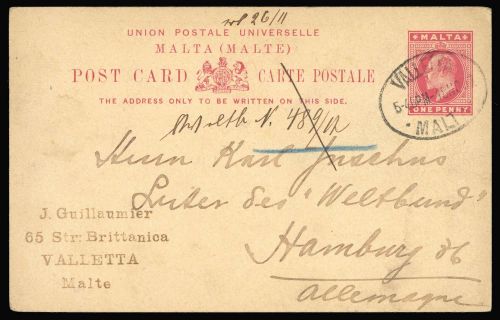 26/11
UNION POSTALE UNIVERSELLE
MALTA (MALTE)
POST CARD CARTE POSTALE
THE ADDRESS ONLY TO BE WRITTEN ON THIS SIDE.
MALTA
ONE PENNY
VALLETTA
MALTA
N. 489/02
Herrn Karl
Leiter des "Weltbund"
Hamburg
Allemagne
J. Guillaumier
65 Str: Brittanica
VALLETTA
Malte